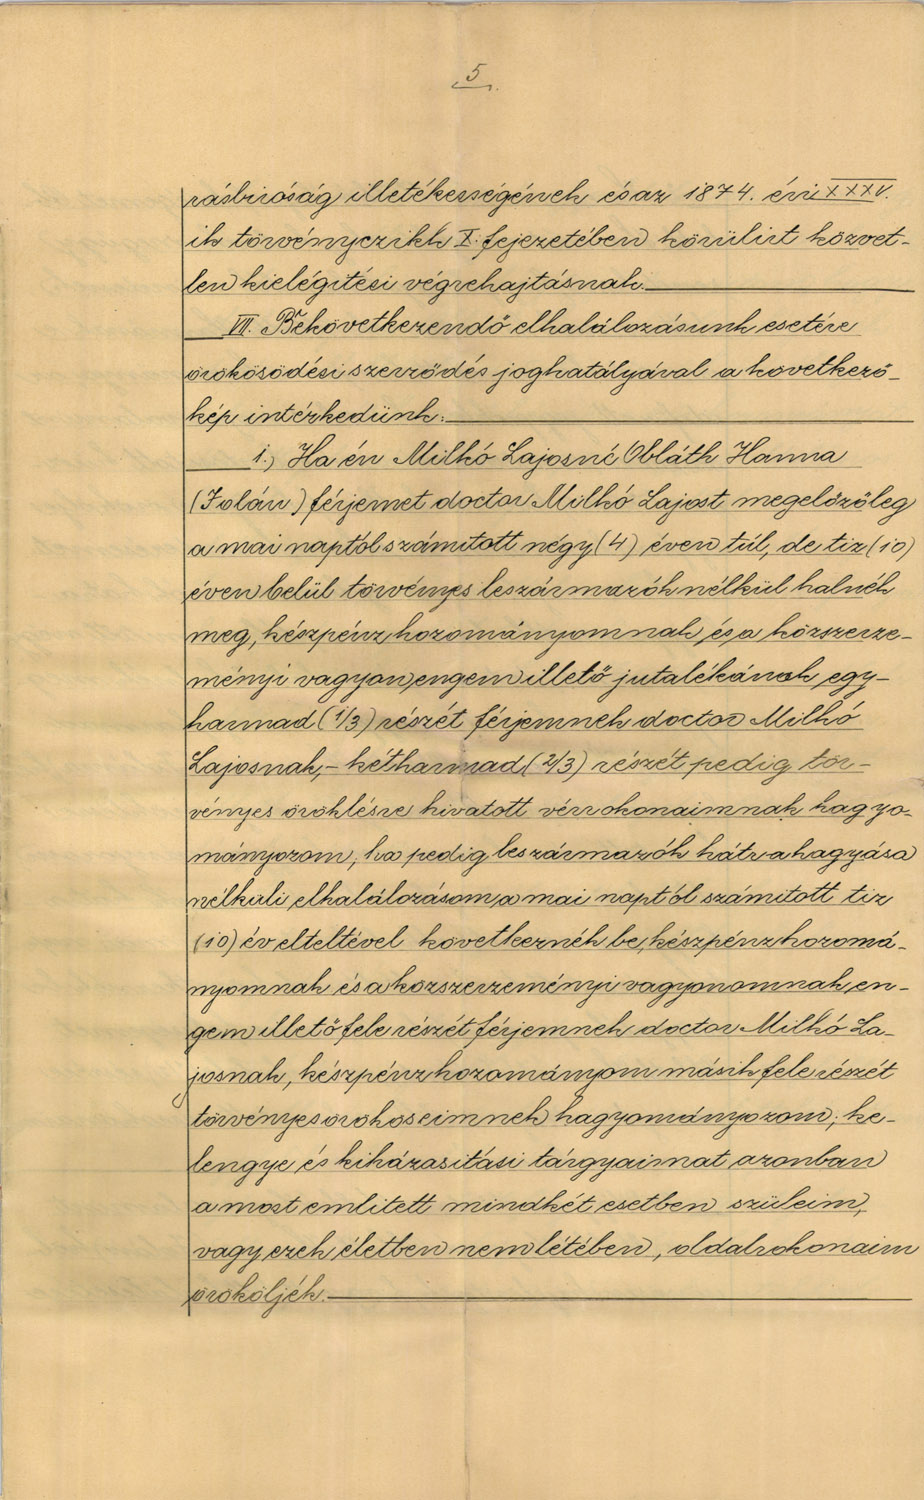 5
rásbiróság illetékességének és az 1874. évi XXXV.
ik törvényczikk X. fejezetében körülirt közvet-
len kielégitési végrehajtásnak.
VII. Bekövetkezendő elhalálozásunk esetére
örökösödési szerződés joghatályával a következő-
kép intézkedünk:
1.) Ha én Milkó Lajosné Obláth Hanna
(Jolán) férjemet doctor Milkó Lajost megelőzőleg
a mai naptól számitott négy (4) éven túl, de tiz (10)
éven belül törvényes leszármazók nélkül halnék
meg, készpénz hozományomnak és a közszerze-
ményi vagyon engem illető jutalékának egy-
harmad (1/3) részét férjemnek doctor Milkó
Lajosnak, - kétharmad (2/3) részét pedig tör-
vényes öröklésre hivatott vérrokonaimnak hagyo-
mányozom, ha pedig leszármazók hátrahagyása
nélküli elhalálozásom a mai naptól számitott tiz
(10) év elteltével következnék be, készpénz hozomá-
nyomnak és a közszerzeményi vagyonomnak en-
gem illető fele részét férjemnek doctor Milkó La-
josnak, készpénz hozományom másik fele részét
törvényes örököseimnek hagyományozom; ke-
lengye és kiházasitási tárgyaimat azonban
a most emlitett mindkét esetben szüleim,
vagy ezek életben nem létében, oldalrokonaim
örököljék.